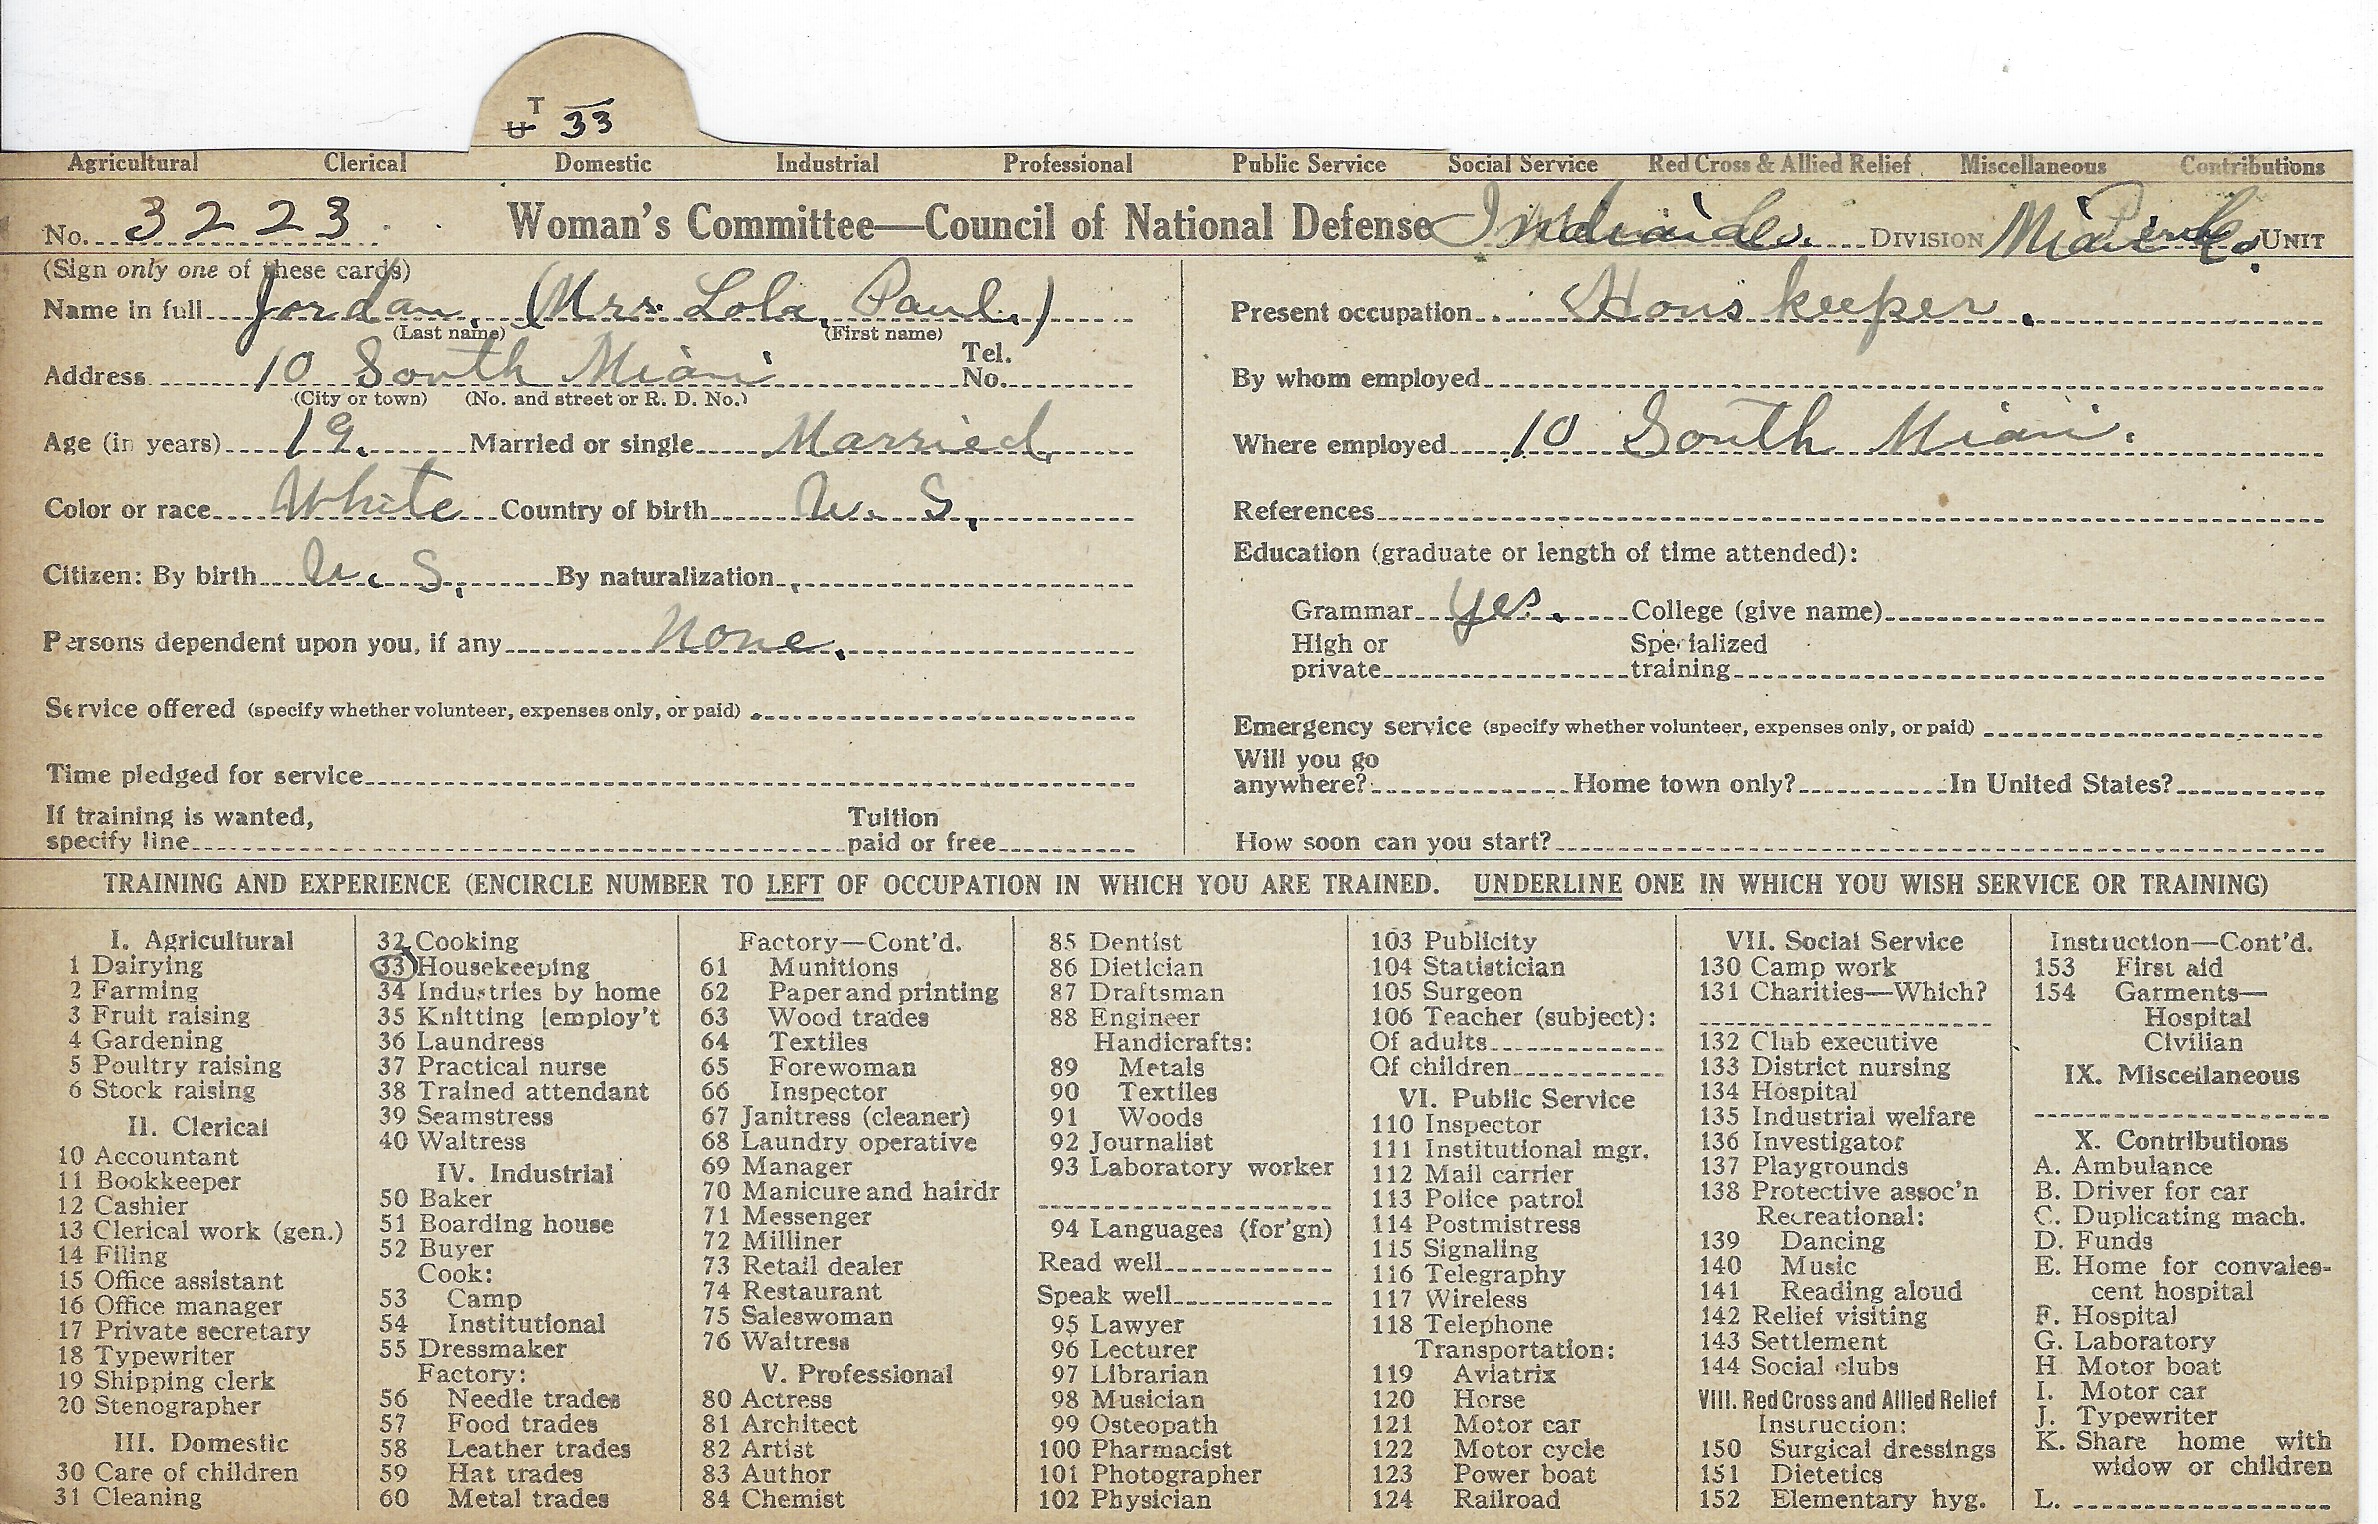 T
U 33
Agricultural Clerical Domestic Industrial Professional Public Service Social Service Red Cross & Allied Relief Miscellaneous Contributions
No. 3223 Woman's Committee—Council of National Defense DIVISION UNIT
(Sign only one of these cards)
Name in full Jordan, (Mrs. Lola, Paul.)
(Last name) (First name)
Address 10 South Miami Tel. No.
(City or town) (No. and street or R. D. No.)
Age (in years) 19. Married or single Married
Color or race White Country of birth U. S.
Citizen: By birth U. S. By naturalization
Persons dependent upon you, if any None.
Service offered (specify whether volunteer, expenses only, or paid)
Time pledged for service
If training is wanted, specify line Tuition paid or free
Present occupation Hous keeper.
By whom employed
Where employed 10 South Miami.
References
Education (graduate or length of time attended):
Grammar yes. College (give name)
High or private Specialized training
Emergency service (specify whether volunteer, expenses only, or paid)
Will you go anywhere? Home town only? In United States?
How soon can you start?
TRAINING AND EXPERIENCE (ENCIRCLE NUMBER TO LEFT OF OCCUPATION IN WHICH YOU ARE TRAINED. UNDERLINE ONE IN WHICH YOU WISH SERVICE OR TRAINING)
I. Agricultural
1 Dairying
2 Farming
3 Fruit raising
4 Gardening
5 Poultry raising
6 Stock raising
II. Clerical
10 Accountant
11 Bookkeeper
12 Cashier
13 Clerical work (gen.)
14 Filing
15 Office assistant
16 Office manager
17 Private secretary
18 Typewriter
19 Shipping clerk
20 Stenographer
III. Domestic
30 Care of children
31 Cleaning
32 Cooking
33 Housekeeping
34 Industries by home
35 Knitting [employ't
36 Laundress
37 Practical nurse
38 Trained attendant
39 Seamstress
40 Waitress
IV. Industrial
50 Baker
51 Boarding house
52 Buyer
Cook:
53 Camp
54 Institutional
55 Dressmaker
Factory:
56 Needle trades
57 Food trades
58 Leather trades
59 Hat trades
60 Metal trades
Factory—Cont'd.
61 Munitions
62 Paper and printing
63 Wood trades
64 Textiles
65 Forewoman
66 Inspector
67 Janitress (cleaner)
68 Laundry operative
69 Manager
70 Manicure and hairdr
71 Messenger
72 Milliner
73 Retail dealer
74 Restaurant
75 Saleswoman
76 Waitress
V. Professional
80 Actress
81 Architect
82 Artist
83 Author
84 Chemist
85 Dentist
86 Dietician
87 Draftsman
88 Engineer
Handicrafts:
89 Metals
90 Textiles
91 Woods
92 Journalist
93 Laboratory worker
94 Languages (for'gn)
Read well
Speak well
95 Lawyer
96 Lecturer
97 Librarian
98 Musician
99 Osteopath
100 Pharmacist
101 Photographer
102 Physician
103 Publicity
104 Statistician
105 Surgeon
106 Teacher (subject):
Of adults
Of children
VI. Public Service
110 Inspector
111 Institutional mgr.
112 Mail carrier
113 Police patrol
114 Postmistress
115 Signaling
116 Telegraphy
117 Wireless
118 Telephone
Transportation:
119 Aviatrix
120 Horse
121 Motor car
122 Motor cycle
123 Power boat
124 Railroad
VII. Social Service
130 Camp work
131 Charities—Which?
132 Club executive
133 District nursing
134 Hospital
135 Industrial welfare
136 Investigator
137 Playgrounds
138 Protective assoc'n
Recreational:
139 Dancing
140 Music
141 Reading aloud
142 Relief visiting
143 Settlement
144 Social clubs
VIII. Red Cross and Allied Relief
Instruction:
150 Surgical dressings
151 Dietetics
152 Elementary hyg.
Instruction—Cont'd.
153 First aid
154 Garments—
Hospital
Civilian
IX. Miscellaneous
X. Contributions
A. Ambulance
B. Driver for car
C. Duplicating mach.
D. Funds
E. Home for convales-
cent hospital
F. Hospital
G. Laboratory
H Motor boat
I. Motor car
J. Typewriter
K. Share home with
widow or children
L.